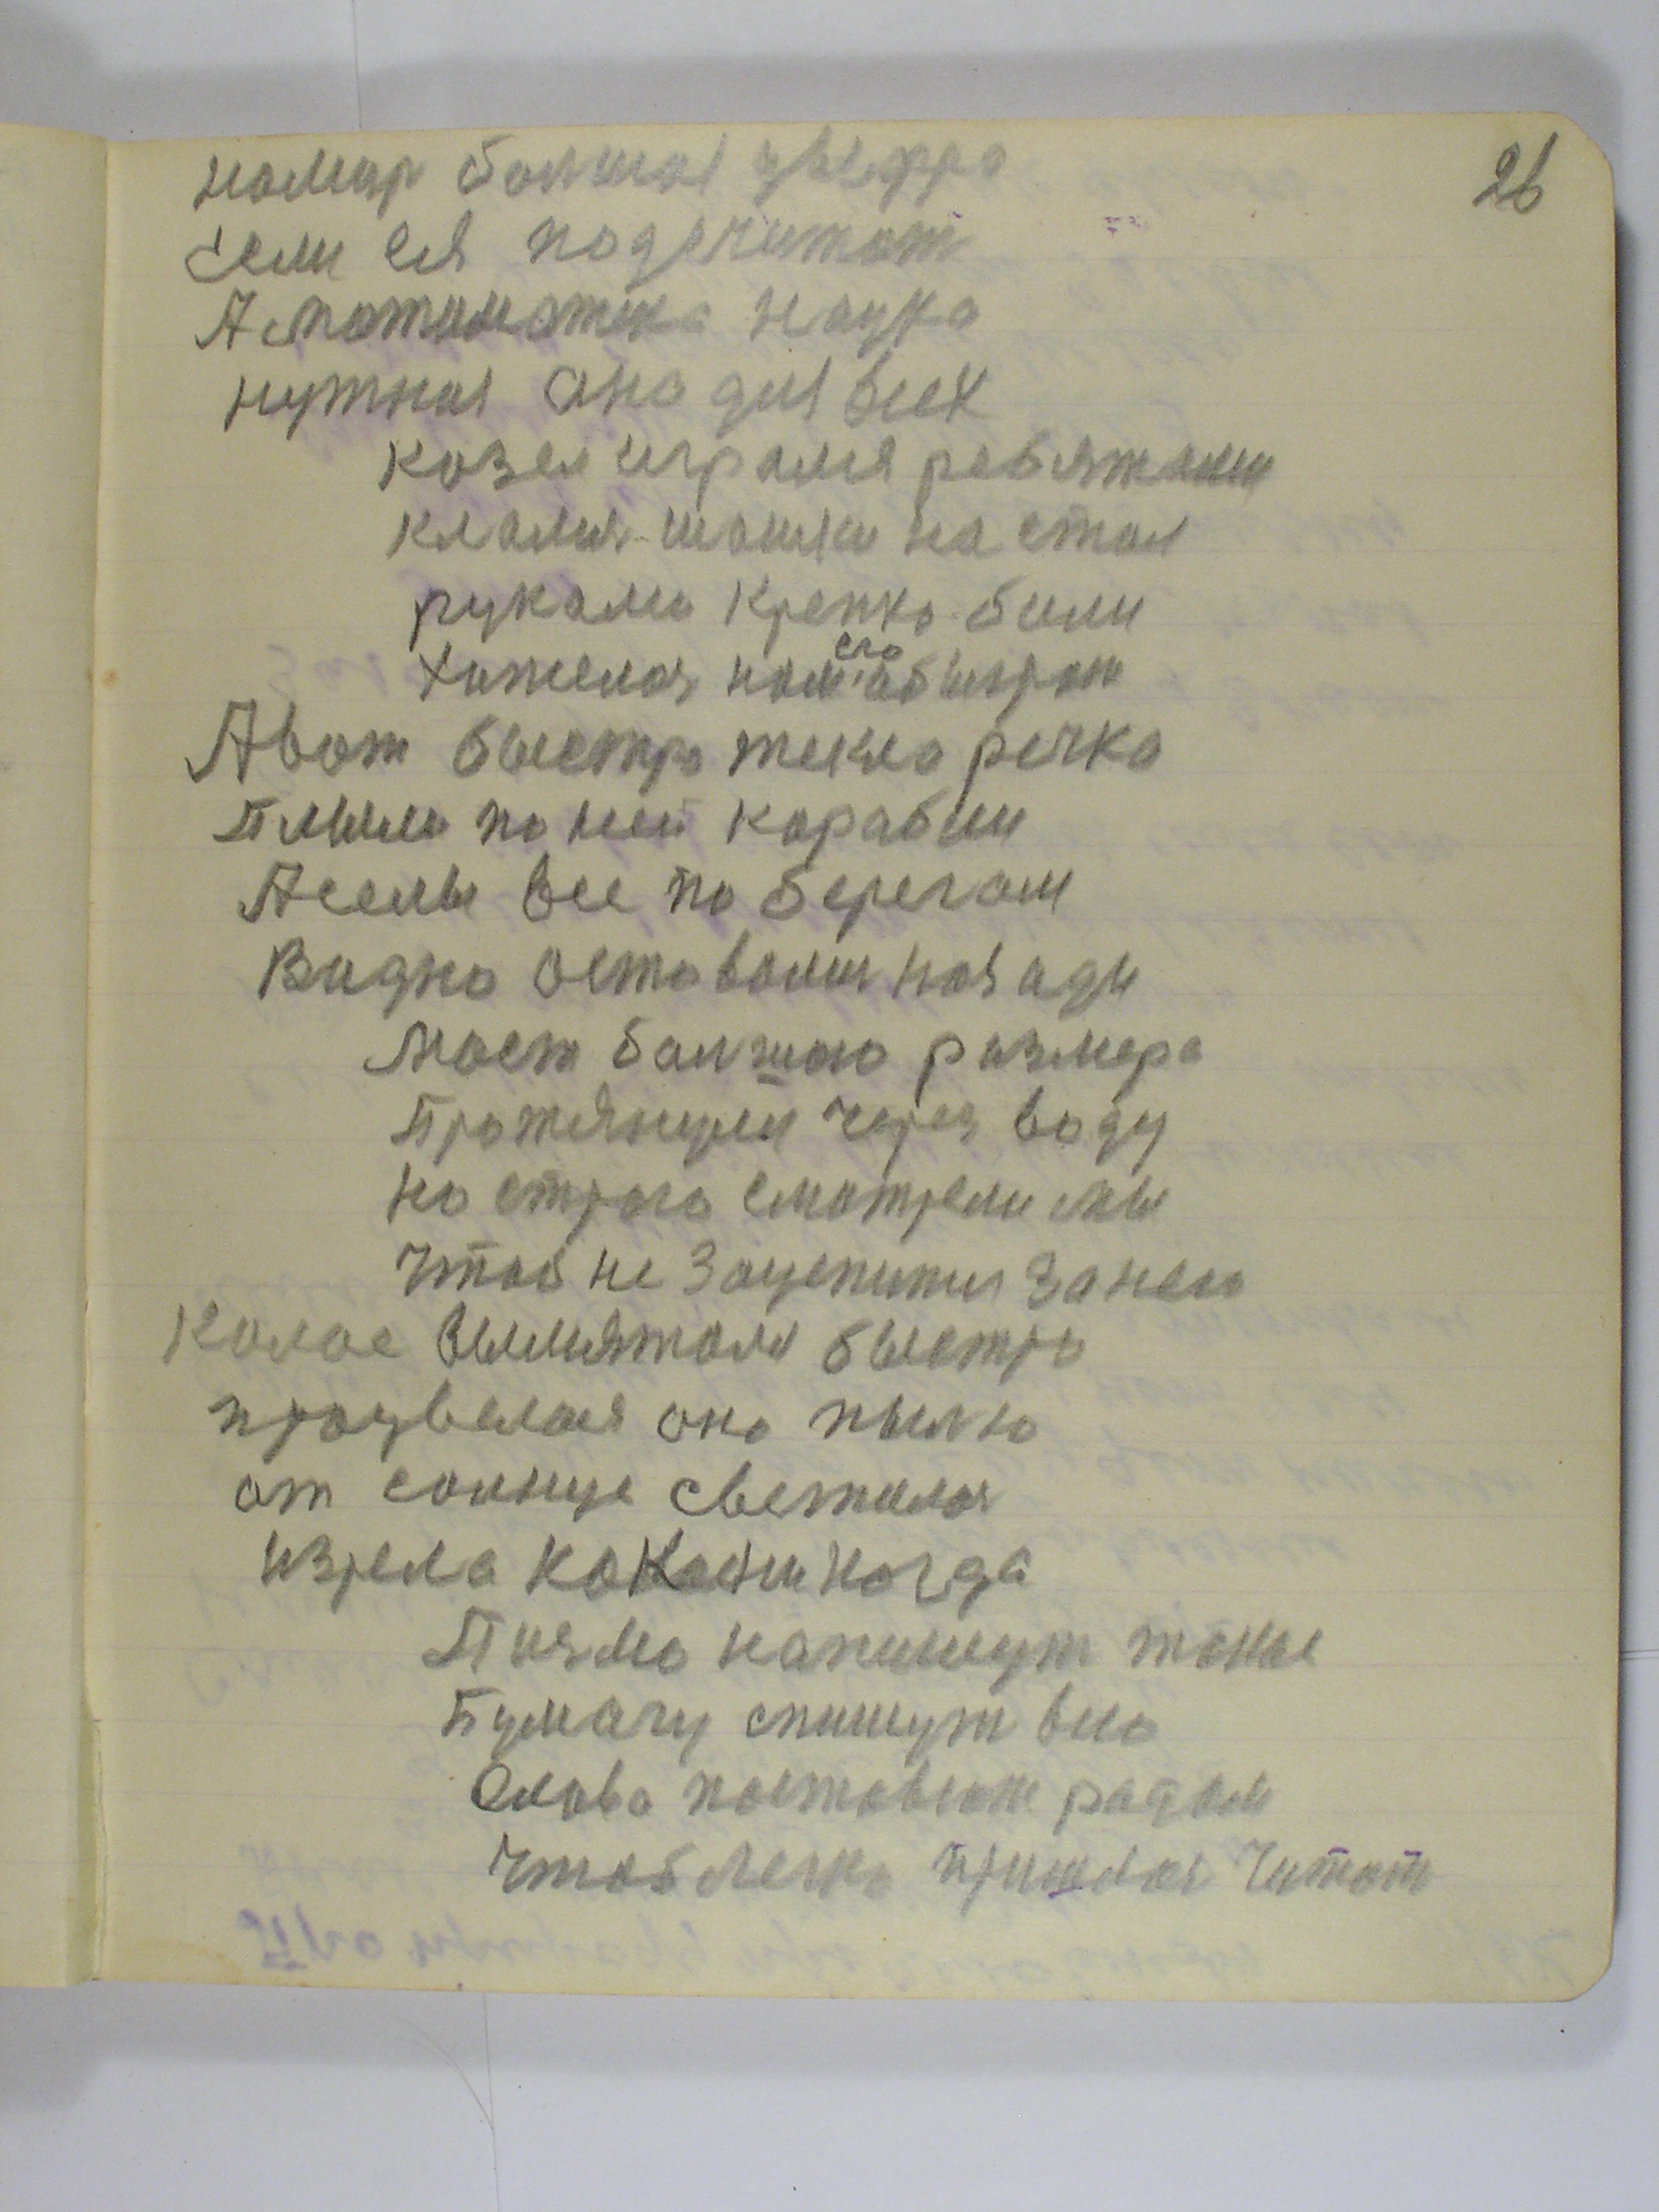 26
номир болшая цыфра
Если ея подсчитат
А мотиматика наука
нутная она для всех
козел играля ребятами
клалия шашки на стол
руками крепко били
тижелоя ном его абыграт
А вот быстро текла речка
Плыли по ней корабли
А селы все по берегам
Видно оставалия поз ади
Мост балшою размера
Протянули через воду
но строго смотрели мы
Чтоб не Зацепится за нево
Колос вылиятоля быстро
процвелоя она пылю
от солнце светилоя
изрела как она ногда
Писмо напишут такое
Бумагу спишут всю
Слова поставют радам
Чтоб легко пришлоя Читат